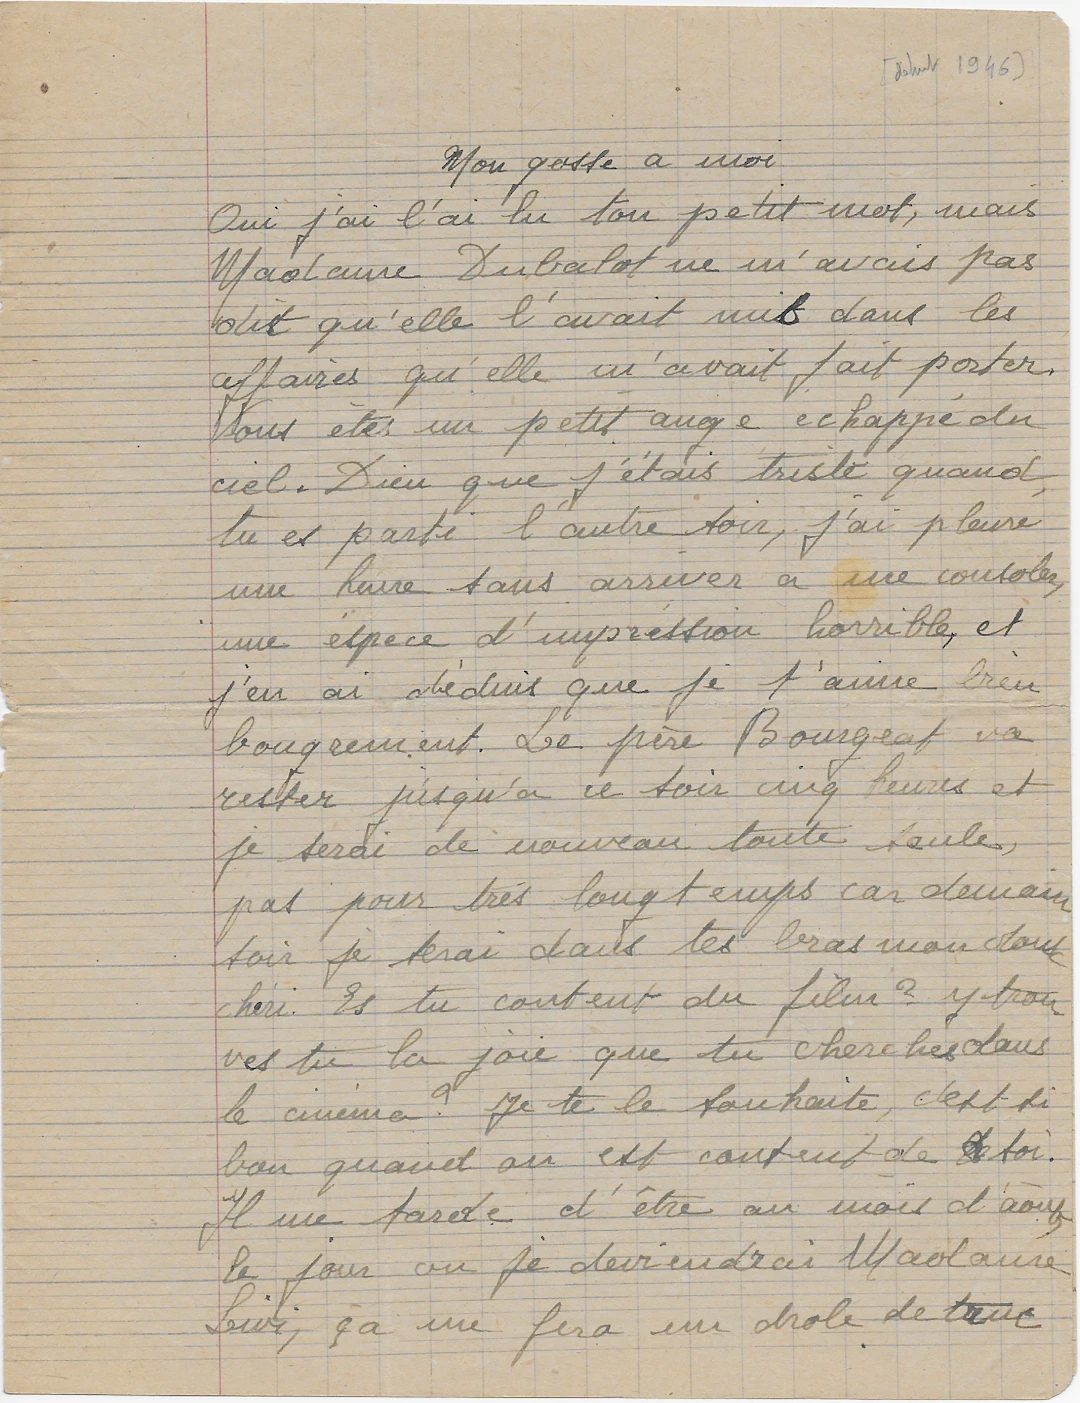 [début 1946]
Mon gosse a moi
Oui j'ai l'ai lu ton petit mot, mais
Madame Dubalot ne m'avais pas
dit qu'elle l'avait mis dans les
affaires qu'elle m'avait fait porter.
Vous êtes un petit ange échappé du
ciel. Dieu que j'étais triste quand
tu es parti l'autre soir, j'ai pleuré
une heure sans arriver a me consoler,
une éspece d'impréssion horrible, et
j'en ai déduis que je t'aime bien
bougrement. Le père Bourgeat va
rester jusqu'a ce soir cinq heures et
je serai de nouveau toute seule,
pas pour très longtemps car demain
soir je serai dans tes bras mon doux
chéri. Es tu content du film? y trou
ves tu la joie que tu cherches dans
le cinéma? Je te le souhaite, c'est si
bon quand on est content de soi.
Il me tarde d'être au mois d'août,
le jour ou je deviendrai Madame
Livi, ça me fera un drole de truc